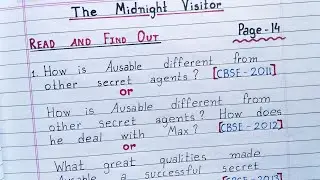 The Midnight Visitor
READ AND FIND OUT
Page-14
1. How is Ausable different from
other secret agents? [CBSE-2011]
or
How is Ausable different from
other secret agents? How does
he deal with Max? [CBSE-2012]
or
What great qualities made
Ausable a successful secret
[CBSE-2013]